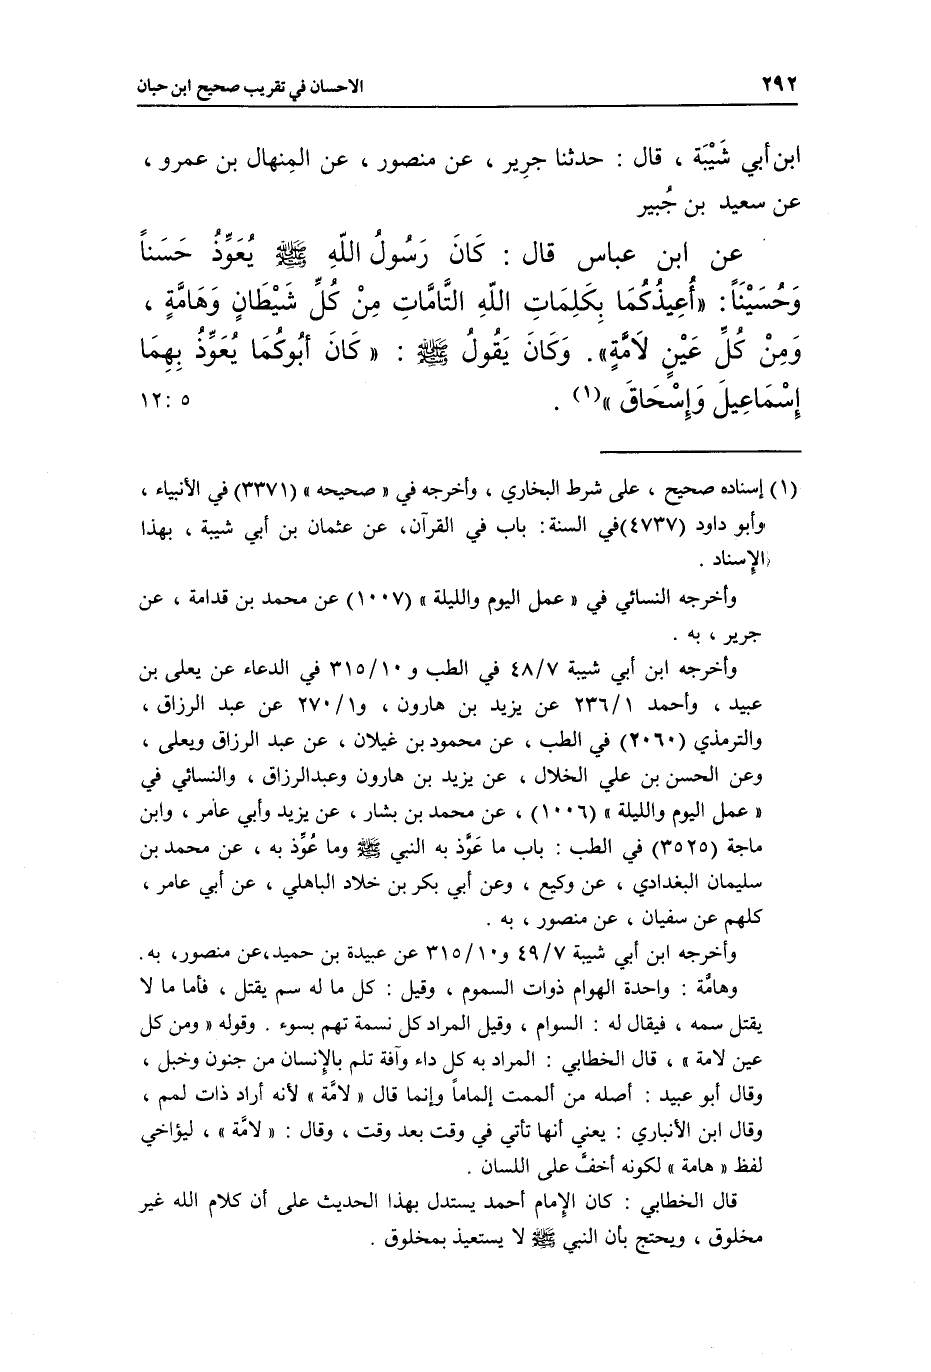 ٢٩٢
الاحسان في تقريب صحيح ابن حبان
ابن أبي شَيْبَة ، قال : حدثنا جرير ، عن منصور ، عن المِنهال بن عمرو ،
عن سعيد بن جُبير
عن ابن عباس قال : كَانَ رَسُولُ اللّهِ ﷺ يُعَوِّذُ حَسَناً
وَحُسَيْنَاً : «أُعِيذُكُمَا بِكَلِمَاتِ اللّهِ التَّامَّاتِ مِنْ كُلِّ شَيْطَانٍ وَهَامَّةٍ ،
وَمِنْ كُلِّ عَيْنٍ لاَمَّةٍ» . وَكَانَ يَقُولُ ﷺ : « كَانَ أَبُوكُمَا يُعَوِّذُ بِهِمَا
إِسْمَاعِيلَ وَإِسْحَاقَ »(١) . ٥ :١٢
(١) إسناده صحيح ، على شرط البخاري ، وأخرجه في « صحيحه » (٣٣٧١) في الأنبياء ،
وأبو داود (٤٧٣٧)في السنة : باب في القرآن، عن عثمان بن أبي شيبة ، بهذا
الإسناد .
وأخرجه النسائي في « عمل اليوم والليلة » (١٠٠٧) عن محمد بن قدامة ، عن
جرير ، به .
وأخرجه ابن أبي شيبة ٤٨/٧ في الطب و ٣١٥/١٠ في الدعاء عن يعلى بن
عبيد ، وأحمد ٢٣٦/١ عن يزيد بن هارون ، و٢٧٠/١ عن عبد الرزاق ،
والترمذي (٢٠٦٠) في الطب ، عن محمود بن غيلان ، عن عبد الرزاق ويعلى ،
وعن الحسن بن علي الخلال ، عن يزيد بن هارون وعبدالرزاق ، والنسائي في
« عمل اليوم والليلة » (١٠٠٦) ، عن محمد بن بشار ، عن يزيد وأبي عامر ، وابن
ماجة (٣٥٢٥) في الطب : باب ما عَوَّذ به النبي ﷺ وما عُوِّذ به ، عن محمد بن
سليمان البغدادي ، عن وكيع ، وعن أبي بكر بن خلاد الباهلي ، عن أبي عامر ،
كلهم عن سفيان ، عن منصور ، به .
وأخرجه ابن أبي شيبة ٤٩/٧ و٣١٥/١٠ عن عبيدة بن حميد،عن منصور، به.
وهامَّة : واحدة الهوام ذوات السموم ، وقيل : كل ما له سم يقتل ، فأما ما لا
يقتل سمه ، فيقال له : السوام ، وقيل المراد كل نسمة تهم بسوء . وقوله « ومن كل
عين لامة » ، قال الخطابي : المراد به كل داء وآفة تلم بالإنسان من جنون وخبل ،
وقال أبو عبيد : أصله من ألممت إلماماً وإنما قال « لامَّة » لأنه أراد ذات لمم ،
وقال ابن الأنباري : يعني أنها تأتي في وقت بعد وقت ، وقال : « لامَّة » ، ليؤاخي
لفظ « هامة » لكونه أخفَّ على اللسان .
قال الخطابي : كان الإمام أحمد يستدل بهذا الحديث على أن كلام الله غير
مخلوق ، ويحتج بأن النبي ﷺ لا يستعيذ بمخلوق .